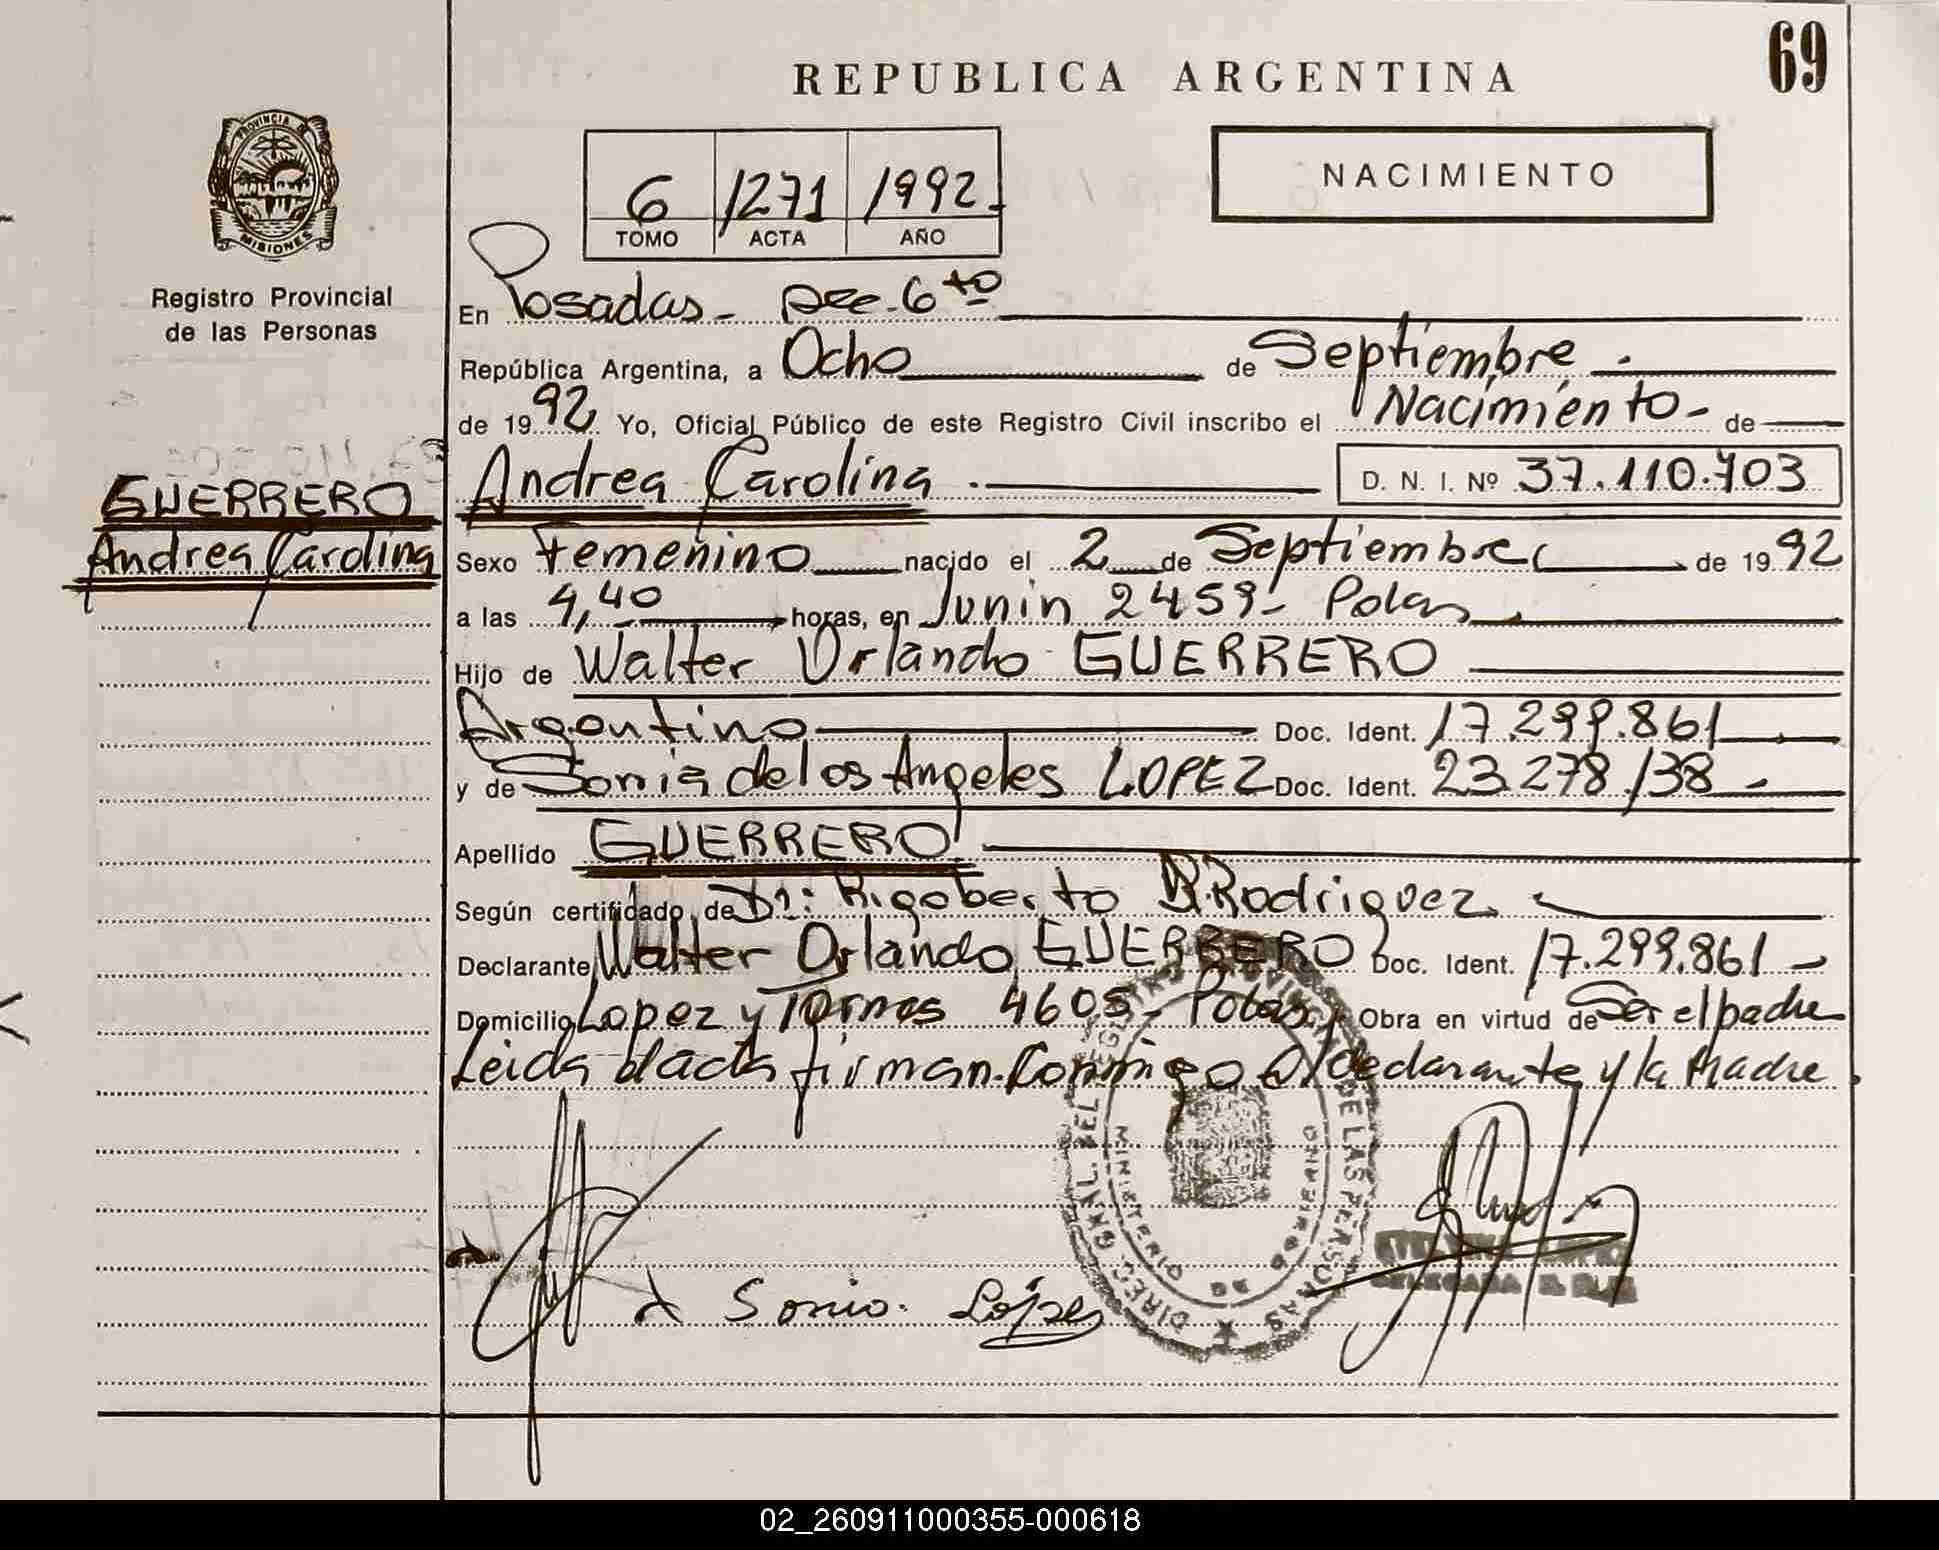 69
REPUBLICA ARGENTINA
PROVINCIA DE
MISIONES
Registro Provincial
de las Personas
6 1271 1992
TOMO ACTA AÑO
NACIMIENTO
En Posadas - Scc. 6to
República Argentina, a Ocho de Septiembre
de 1992 Yo, Oficial Público de este Registro Civil inscribo el Nacimiento - de
GUERRERO
Andrea Carolina
Andrea Carolina D. N. I. Nº 37.110.703
Sexo Femenino nacido el 2 de Septiembre de 1992
a las 4,40 horas, en Junin 2459 - Pdas
Hijo de Walter Orlando GUERRERO
Argentino Doc. Ident. 17.299.861
y de Sonia de los Angeles LOPEZ Doc. Ident. 23.278.138 -
Apellido GUERRERO
Según certificado de Dr: Rigoberto R. Rodriguez
Declarante Walter Orlando GUERRERO Doc. Ident. 17.299.861 -
Domicilio Lopez y Tornes 4605 - Pdas, Obra en virtud de Ser el padre
Leida el acta firman conmigo el declarante y la Madre
DIREC. GRAL. DEL REGISTRO PROVINCIAL DE LAS PERSONAS
MINISTERIO DE GOBIERNO
Sonia López
02_260911000355-000618